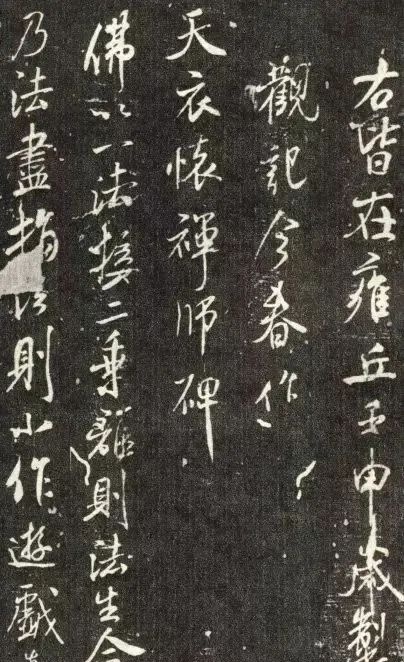 右皆在雍丘壬申歲製
觀記今春作
天衣懷禪師碑
佛以一法接二乘離則法生合
乃法盡指 則小作遊戲